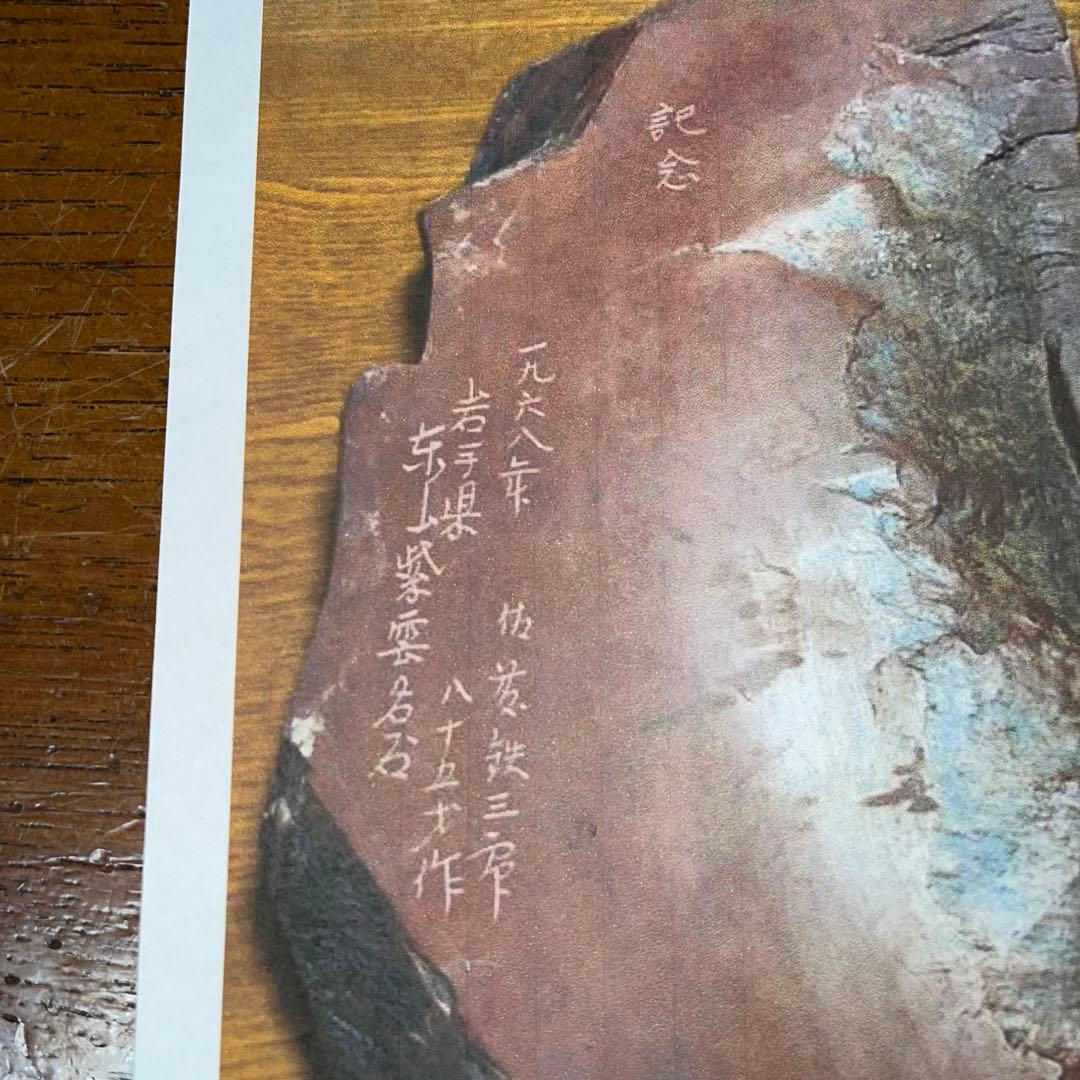 記念
一九六八年 佐藤鉄三郎
岩手県 八十五才作
东山紫雲名石